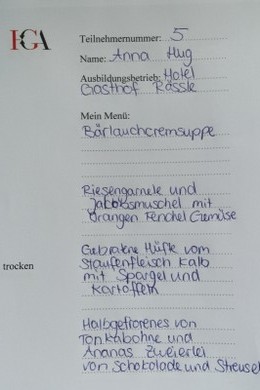 HGA
Teilnehmernummer: 5
Name: Anna Hug
Ausbildungsbetrieb: Hotel
Gasthof Rössle
Mein Menü:
Bärlauchcremsuppe
Riesengarnele und
Jakobsmuschel mit
Orangen Fenchel Gemüse
Gebratene Hüfte vom
Staufenfleisch Kalb
mit Spargel und
Kartoffeln
trocken
Halbgefrorenes von
Tonkabohne und
Ananas Zweierlei
von Schokolade und Streusel